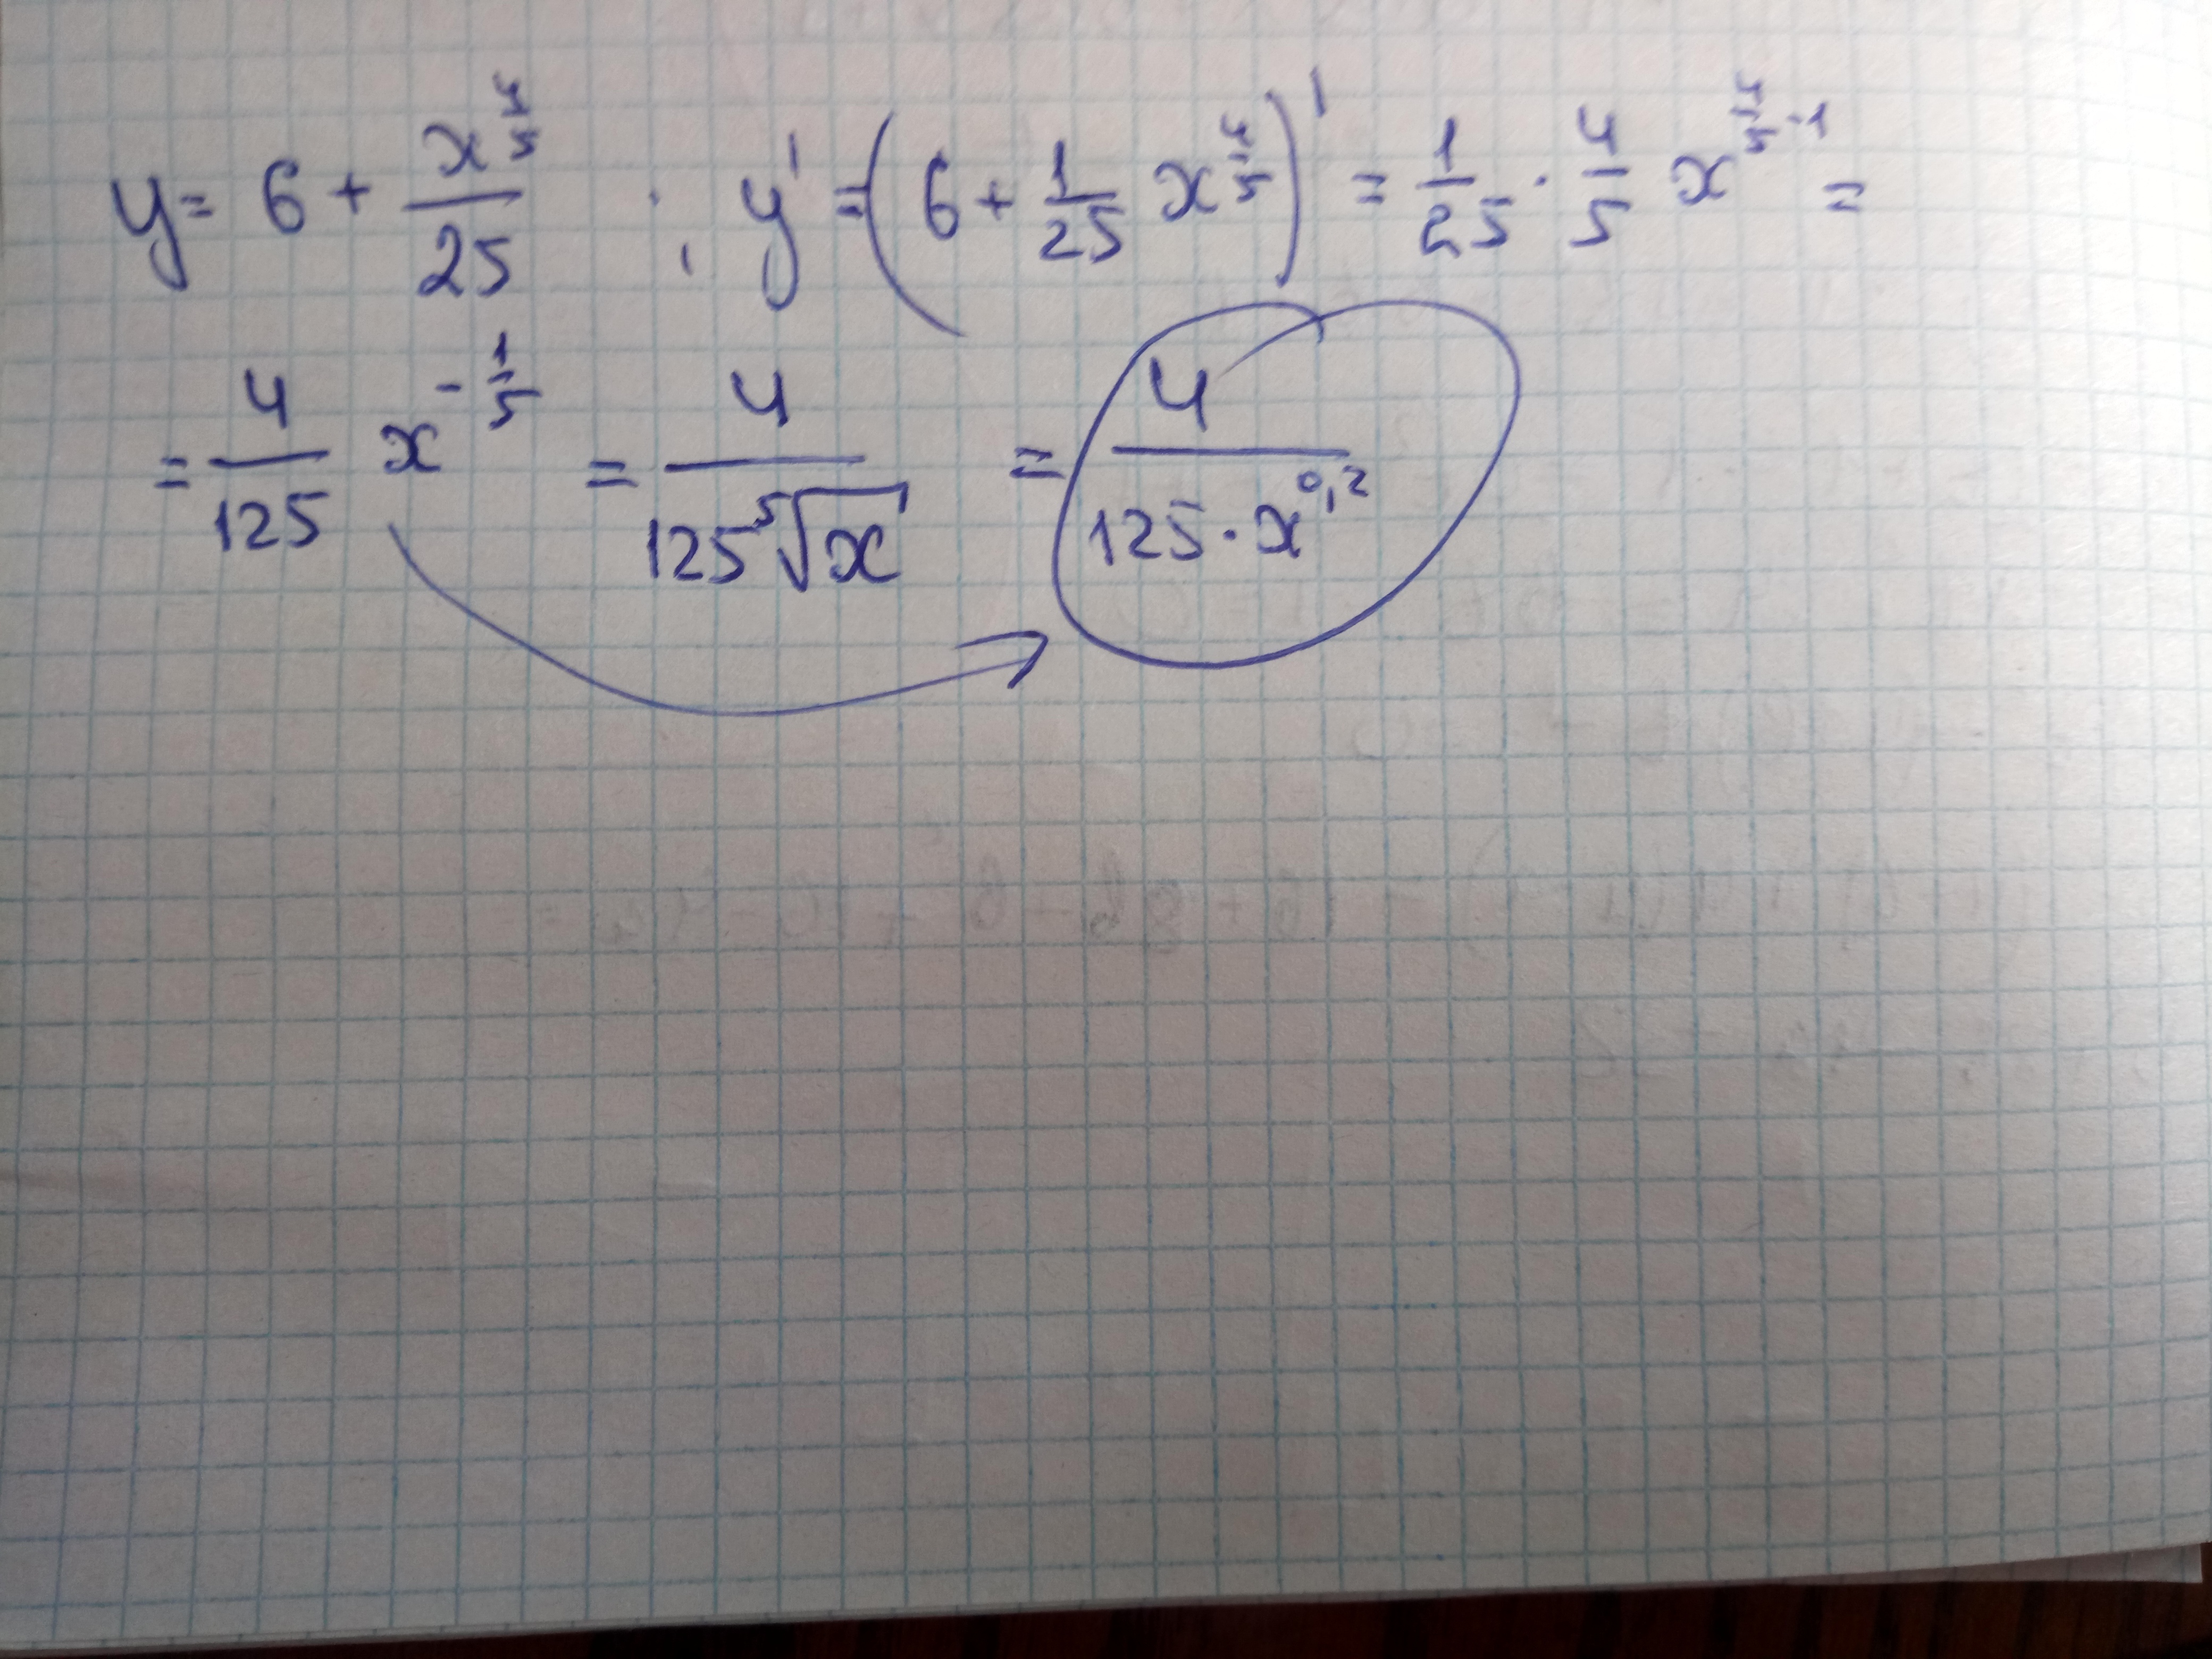 y = 6 + x^(4/5)/25 ; y' = (6 + 1/25 x^(4/5))' = 1/25 · 4/5 x^(4/5 - 1) =
= 4/125 x^(-1/5) = 4/(125 ⁵√x) = 4/(125 · x^0,2)